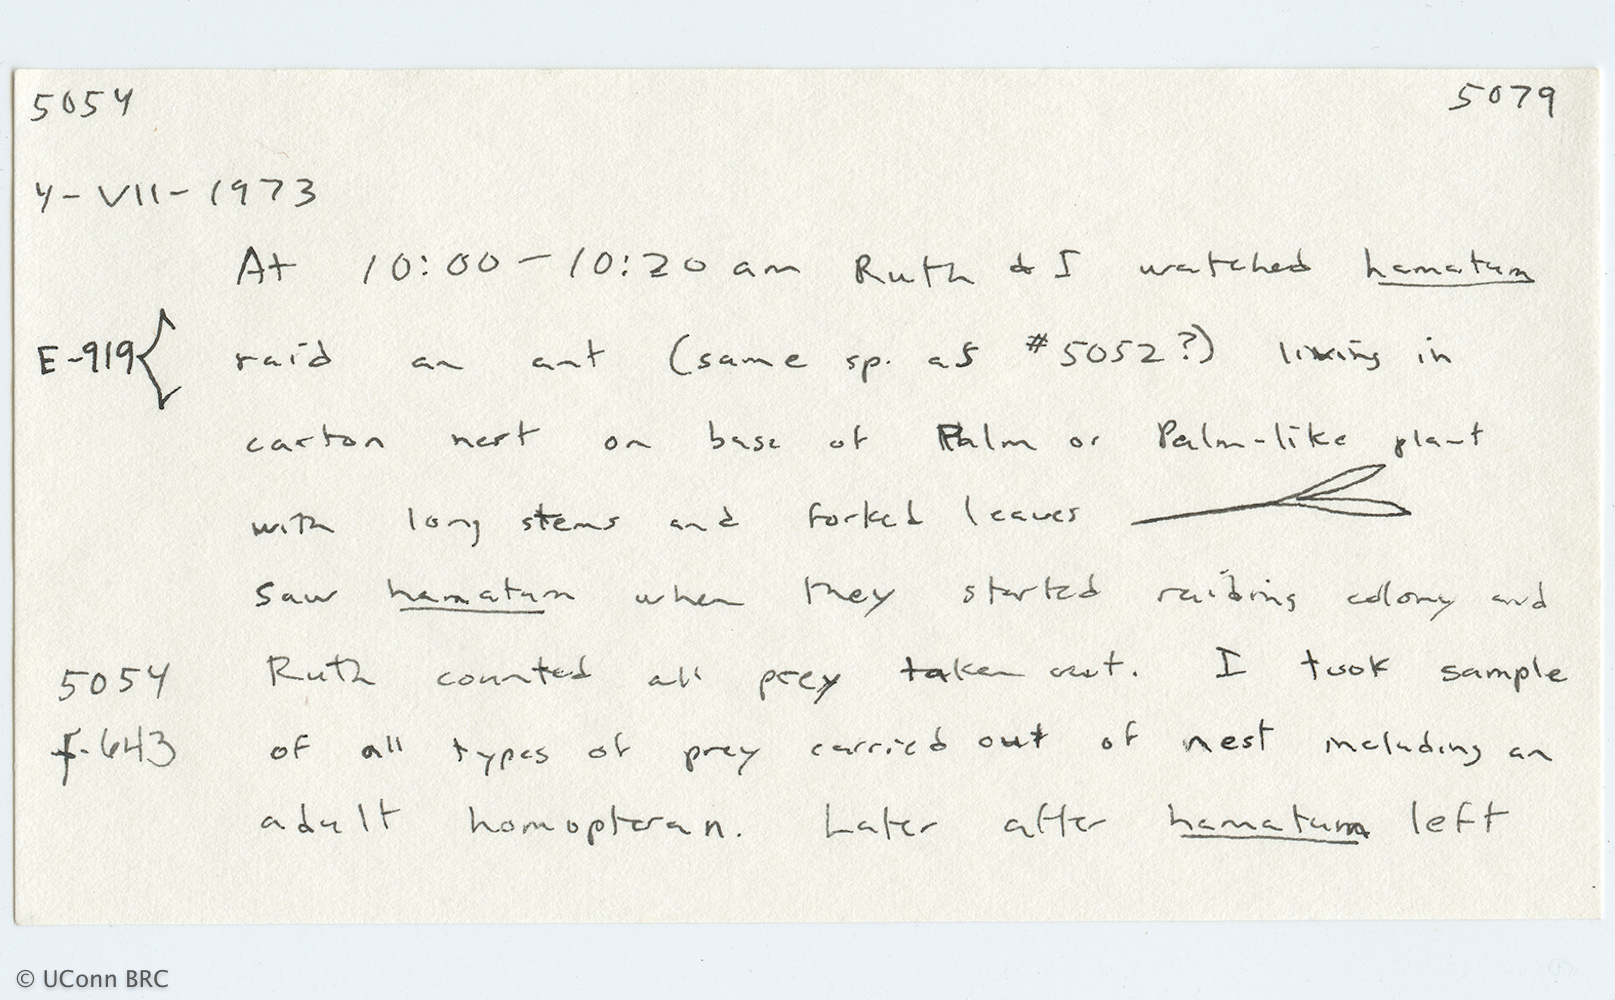 5054 5079
4-VII-1973
At 10:00-10:20 am Ruth & I watched hamatum
E-919 { raid an ant (same sp. as #5052?) living in
carton nest on base of Palm or Palm-like plant
with long stems and forked leaves
saw hamatum when they started raiding colony and
5054 Ruth counted all prey taken out. I took sample
f-643 of all types of prey carried out of nest including an
adult homopteran. Later after hamatum left
© UConn BRC